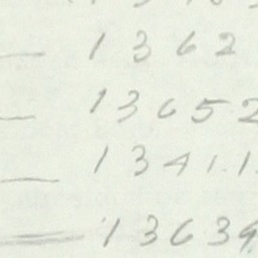 1362
13652
1341.1
13639